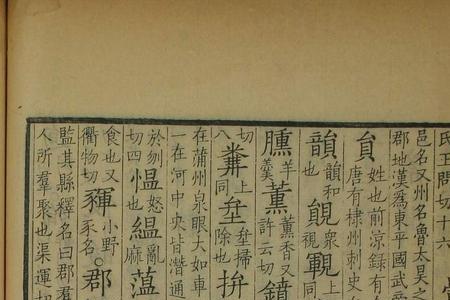 氏王問切十六
邑名又州名魯太昊之
郡地漢爲東平國武帝
貟姓也前凉録有唐有棣州刺史
韻韻和也覞衆視䡣上同
臐羊羹薰薰香又許云切鑂
切八𡊅上同坌坌掃除也拚
在蒲州泉眼大如車
一在河中央皆潛通
於刎切四慍怒也縕亂麻薀
食也又衢物切小野豕名○郡
監其縣釋名曰郡羣
人所羣聚也渠運切